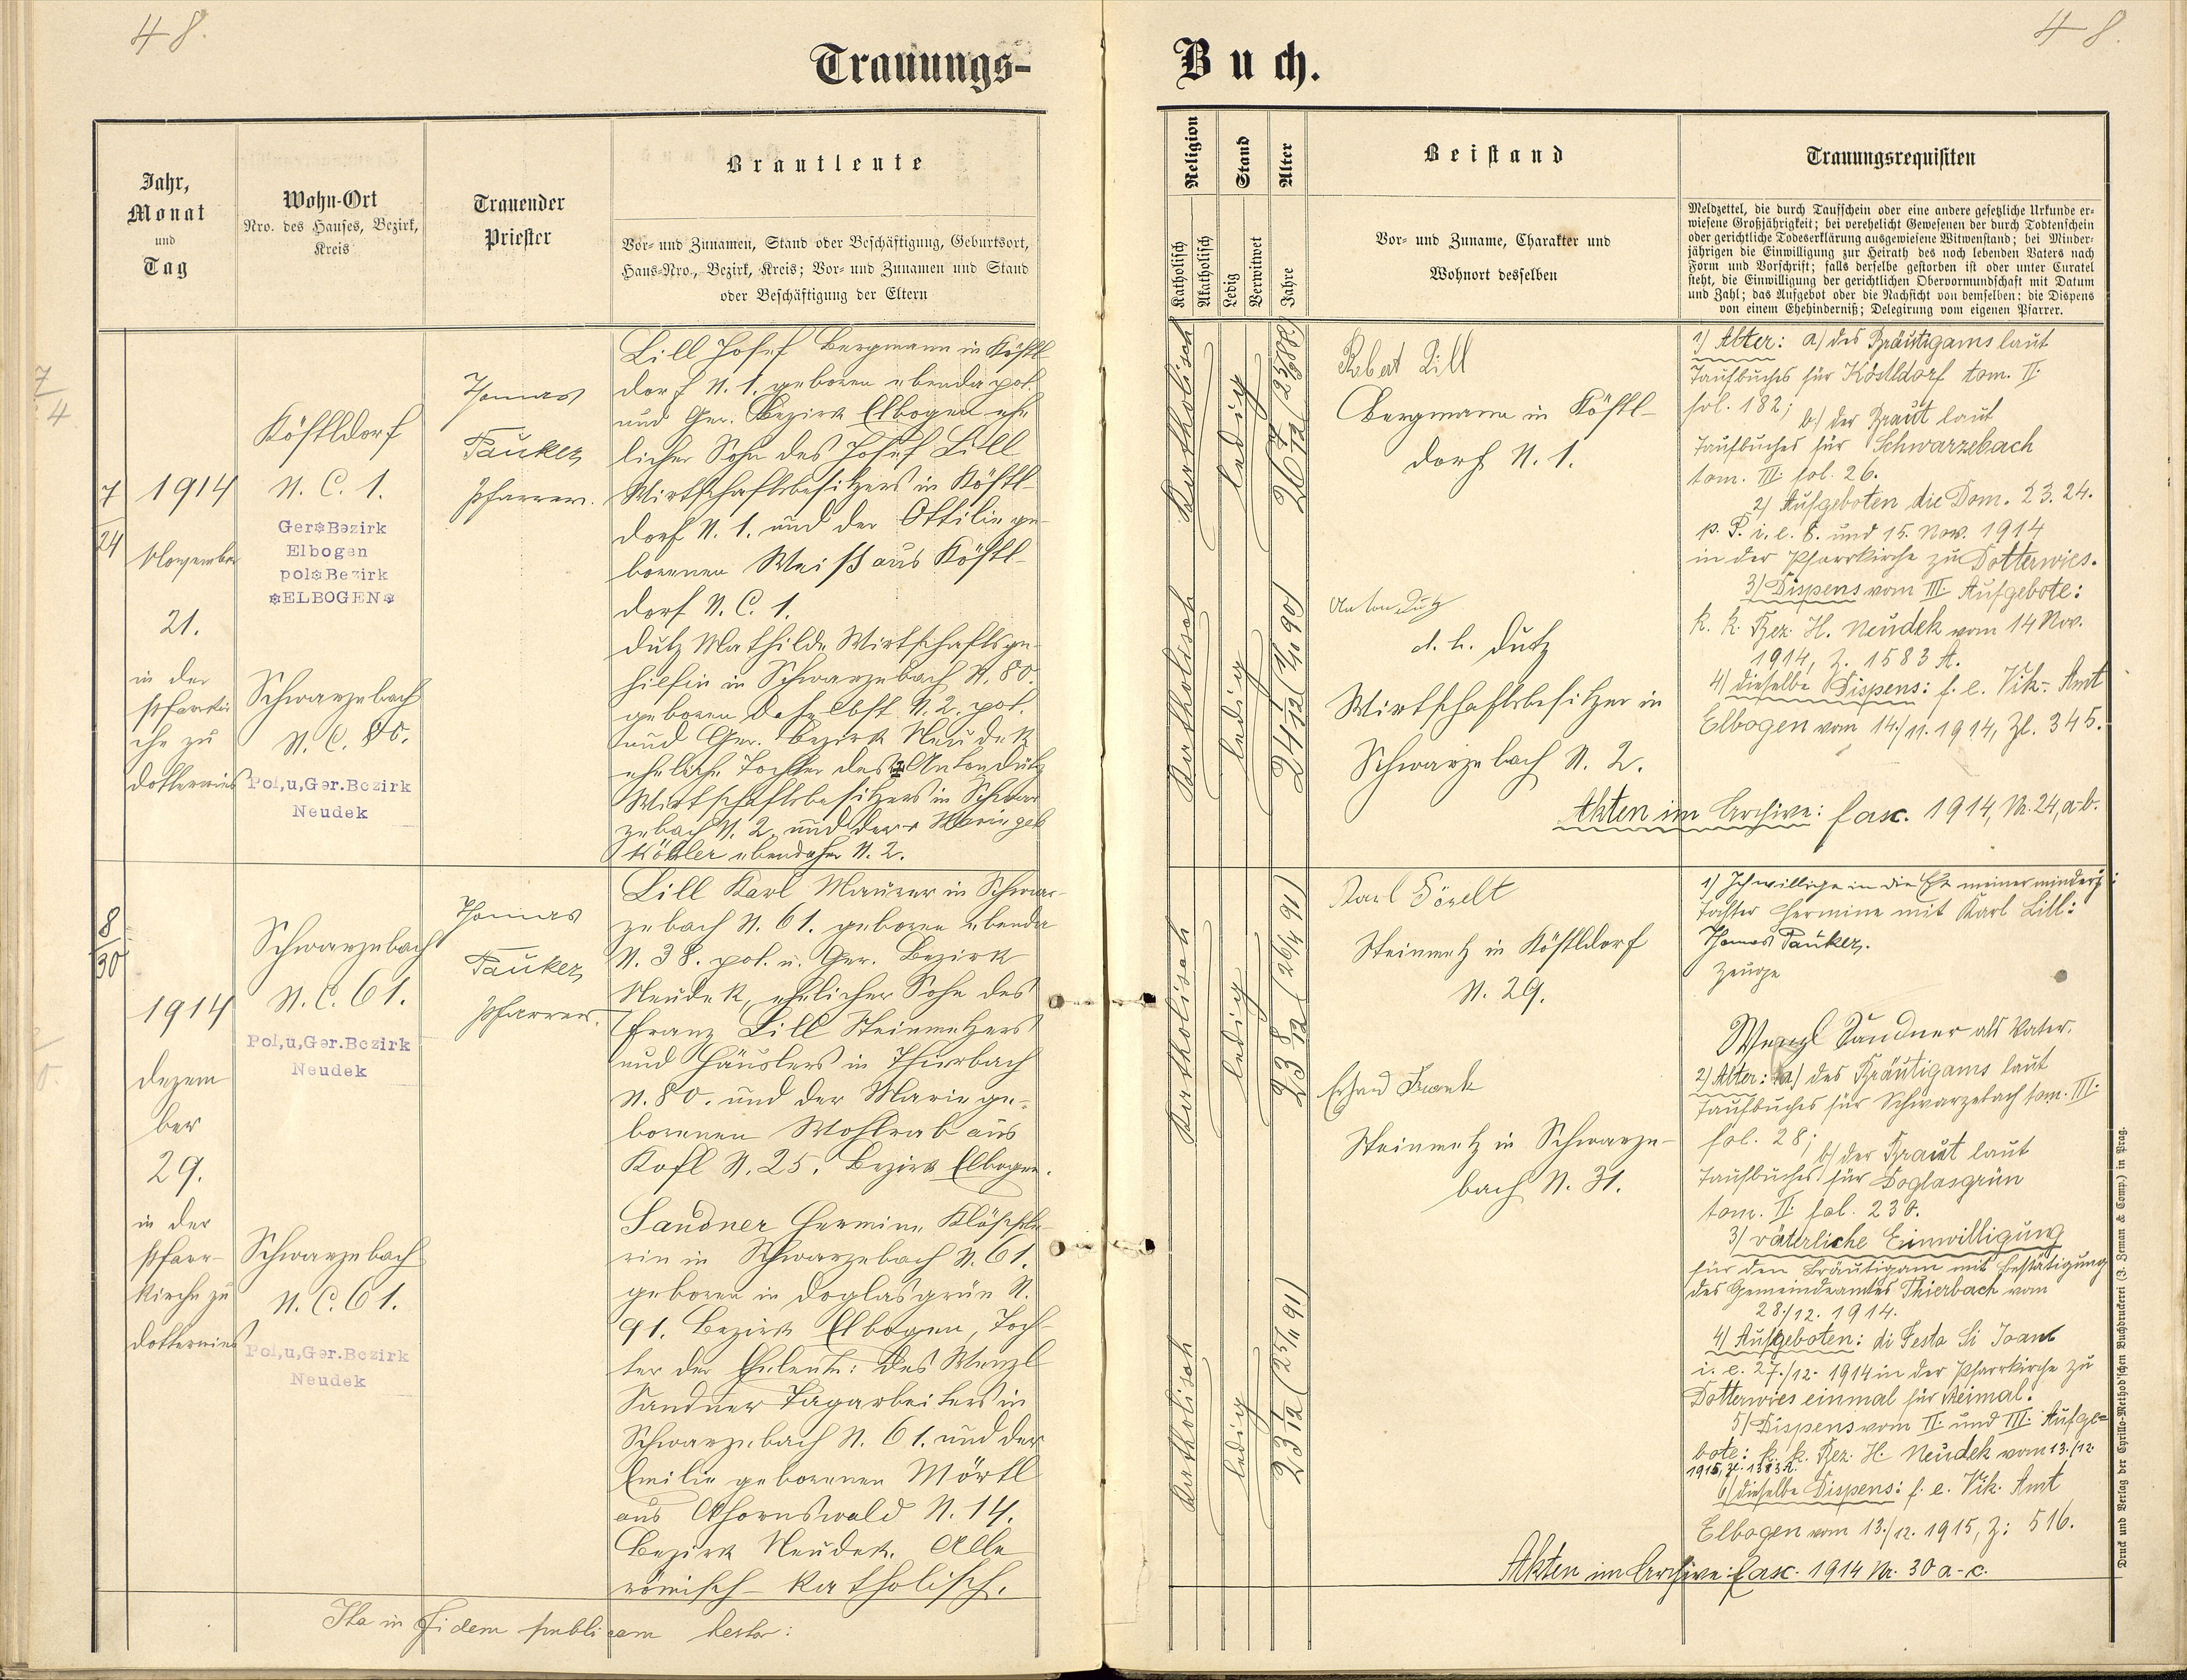 48.
48.
Trauungs-
Buch.
Jahr,
Monat
und
Tag
Wohn-Ort
Nro. des Hauses, Bezirk,
Kreis
Trauender
Priester
Brautleute
Vor- und Zunamen, Stand oder Beschäftigung, Geburtsort,
Haus-Nro., Bezirk, Kreis; Vor- und Zunamen und Stand
oder Beschäftigung der Eltern
Religion
Katholisch
Akatholisch
Stand
Ledig
Verwitwet
Alter
Jahre
Beistand
Vor- und Zuname, Charakter und
Wohnort desselben
Trauungsrequisiten
Meldzettel, die durch Taufschein oder eine andere gesetzliche Urkunde er-
wiesene Großjährigkeit; bei verehelicht Gewesenen der durch Todtenschein
oder gerichtliche Todeserklärung ausgewiesene Witwenstand; bei Minder-
jährigen die Einwilligung zur Heirath des noch lebenden Vaters nach
Form und Vorschrift; falls derselbe gestorben ist oder unter Curatel
steht, die Einwilligung der gerichtlichen Obervormundschaft mit Datum
und Zahl; das Aufgebot oder die Nachsicht von demselben; die Dispens
von einem Ehehinderniß; Delegirung vom eigenen Pfarrer.
7
24
1914
November
21.
in der
Pfarrkir
che zu
Dotterwies
Köstldorf
N. C. 1.
Ger Bezirk
Elbogen
pol Bezirk
ELBOGEN
Schwarzebach
N. C. 80.
Pol,u,Ger.Bezirk
Neudek
Thomas
Pauker
Pfarrer.
Lill Josef Bergmann in Köstl-
dorf N. 1. geboren ebenda pol.
und Ger. Bezirk Elbogen ehe
licher Sohn des Josef Lill
Wirtschaftsbesitzers in Köstl-
dorf N. 1. und der Ottilie ge-
borenen Weiß aus Köstl-
dorf N. C. 1.
Dutz Mathilde Wirtschaftsge-
hilfin in Schwarzebach N. 80.
geboren daselbst N. 2. pol.
und Ger. Bezirk Neudek
eheliche Tochter des Anton Dutz
Wirtschaftsbesitzers in Schwar
zebach N. 2. und der Marie geb
Köhler ebendaher N. 2.
Katholisch
ledig
26 7/12
Katholisch
ledig
24 1/12
Robert Lill
Bergmann in Köstl-
dorf N. 1.
Anton Dutz
d. h. Dutz
Wirtschaftsbesitzer in
Schwarzebach N. 2.
1) Alter: a) des Bräutigams laut
Taufbuches für Köstldorf tom. II.
fol. 182; b) der Braut laut
Taufbuches für Schwarzebach
tom. III. fol. 26.
2) Aufgeboten die Dom. 23. 24.
p. P. i. e. 8. und 15. Nov. 1914
in der Pfarrkirche zu Dotterwies.
3) Dispens vom III. Aufgebote:
k. k. Bez. H. Neudek vom 14 Nov.
1914, Z. 1583 A.
4) dieselbe Dispens: f. e. Vik. Amt
Elbogen vom 14./11. 1914, Zl. 345.
Akten im Archive: fasc. 1914, Nr. 24, a-b.
8
30
1914
Dezem
ber
29.
in der
Pfarr-
kirche zu
Dotterwies
Schwarzebach
N. C. 61.
Pol,u,Ger.Bezirk
Neudek
Schwarzebach
N. C. 61.
Pol,u,Ger.Bezirk
Neudek
Thomas
Pauker
Pfarrer.
Lill Karl Maurer in Schwar-
zebach N. 61. geboren ebenda
N. 38. pol. u. Ger. Bezirk
Neudek, ehelicher Sohn des
Franz Lill Steinmetzers
und Häuslers in Thierbach
N. 80. und der Marie ge-
borenen Wohlrab aus
Kofl N. 25. Bezirk Elbogen.
Sandner Hermine Klöpple-
rin in Schwarzebach N. 61.
geboren in Doglasgrün N.
91. Bezirk Elbogen, Toch-
ter der Eheleute: des Wenzl
Sandner Tagarbeiters in
Schwarzebach N. 61. und der
Emilie geborenen Mörtl
aus Ahornswald N. 14.
Bezirk Neudek. Alle
römisch-katholisch.
Katholisch
ledig
23 8/12 (26/4 91)
Katholisch
ledig
23 1/12 (25/11 91)
Karl
Steinmetz in Köstldorf
N. 29.
Erhard
Steinmetz in Schwarze-
bach N. 31.
1) Ich willige in die Ehe meiner minderj:
Tochter Hermine mit Karl Lill:
Thomas Pauker.
Zeuge
Wenzl Sandner als Vater.
2) Alter: a) des Bräutigams laut
Taufbuches für Schwarzebach tom. III.
fol. 28; b) der Braut laut
Taufbuches für Doglasgrün
tom. II. fol. 230.
3) väterliche Einwilligung
für den Bräutigam mit Bestätigung
des Gemeindeamtes Thierbach vom
28./12. 1914.
4) Aufgeboten: di Festo Si Joan
i. e. 27./12. 1914 in der Pfarrkirche zu
Dotterwies einmal für dreimal.
5) Dispens vom II. und III. Aufge-
bote: k. k. Bez. H. Neudek vom 13./12.
6) dieselbe Dispens: f. e. Vik. Amt
Elbogen vom 13./12. 1915, Z: 516.
Akten im Archive: fasc. 1914 Nr. 30 a-c.
Ita in fidem publicam testor:
Druck und Verlag der Cyrillo-Method'schen Buchdruckerei (J. Zeman & Comp.) in Prag.